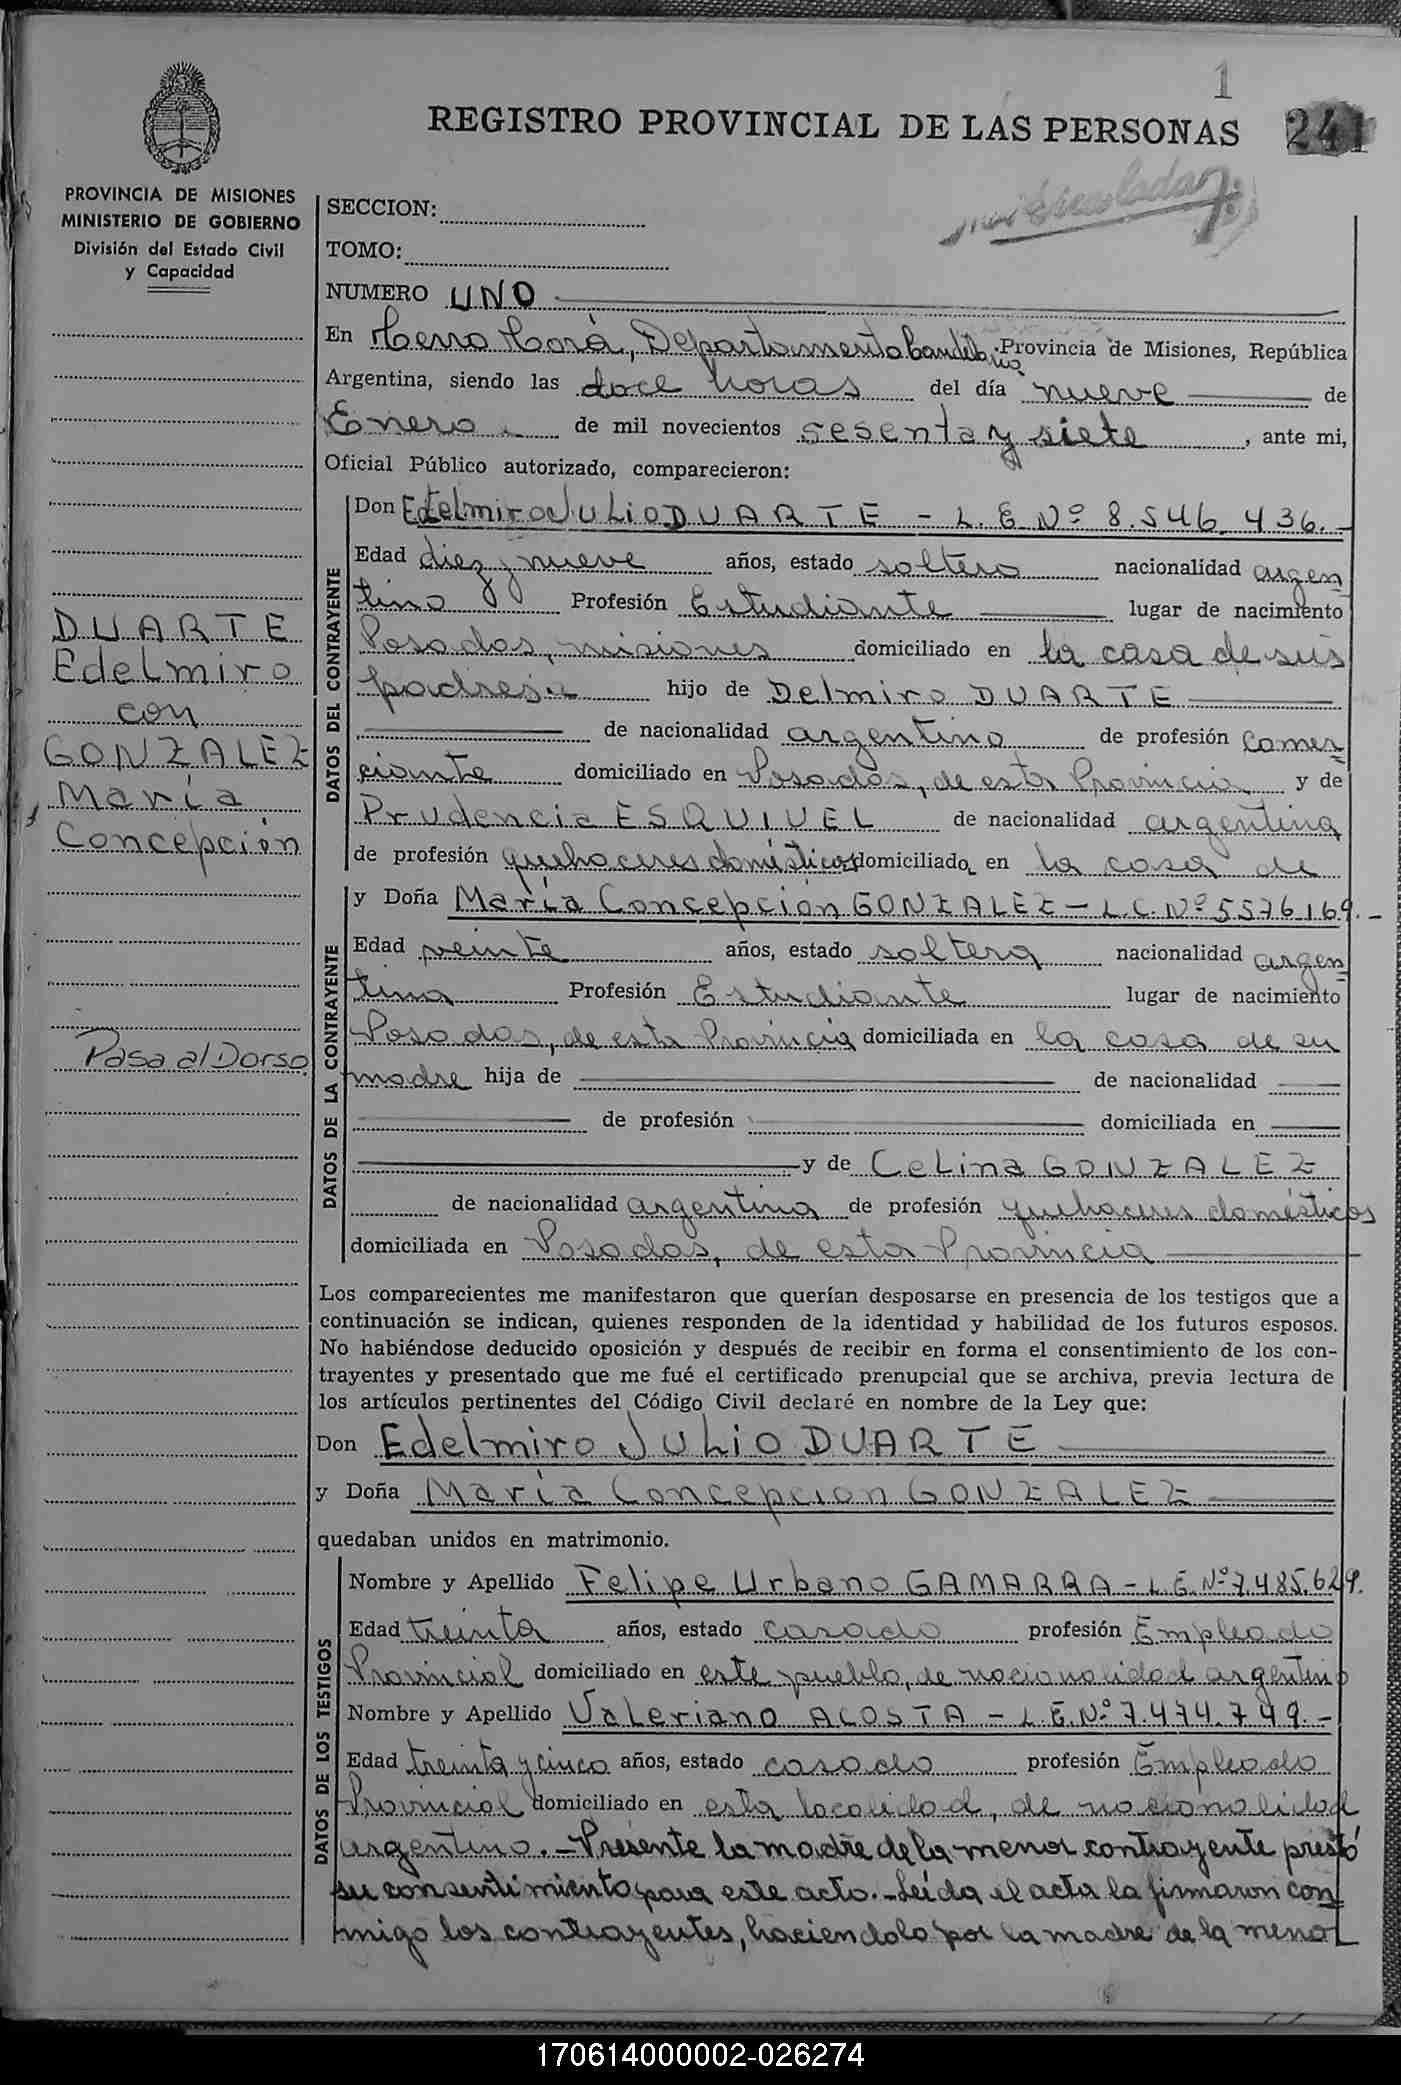 1
REGISTRO PROVINCIAL DE LAS PERSONAS 241
PROVINCIA DE MISIONES
MINISTERIO DE GOBIERNO
División del Estado Civil
y Capacidad
DUARTE
Edelmiro
con
GONZALEZ
María
Concepción
Pasa al Dorso
SECCION:
TOMO:
NUMERO UNO
En Cerro Corá, Departamento Candelaria Provincia de Misiones, República
Argentina, siendo las doce horas del día nueve de
Enero de mil novecientos sesenta y siete, ante mi,
Oficial Público autorizado, comparecieron:
DATOS DEL CONTRAYENTE
Don Edelmiro Julio DUARTE - L.E Nº 8.546.436.-
Edad diez y nueve años, estado soltero nacionalidad argen
tino Profesión Estudiante lugar de nacimiento
Posadas, misiones domiciliado en la casa de sus
padres hijo de Delmiro DUARTE
de nacionalidad argentino de profesión comer
ciante domiciliado en Posadas, de esta Provincia y de
Prudencia ESQUIVEL de nacionalidad argentina
de profesión quehaceres domésticos domiciliado en la casa de
DATOS DE LA CONTRAYENTE
y Doña María Concepción GONZALEZ - L.C. Nº 5576169.-
Edad veinte años, estado soltera nacionalidad argen
tina Profesión Estudiante lugar de nacimiento
Posadas, de esta Provincia domiciliada en la casa de su
madre hija de de nacionalidad
de profesión domiciliada en
y de Celina GONZALEZ
de nacionalidad argentina de profesión quehaceres domésticos
domiciliada en Posadas, de esta Provincia
Los comparecientes me manifestaron que querían desposarse en presencia de los testigos que a
continuación se indican, quienes responden de la identidad y habilidad de los futuros esposos.
No habiéndose deducido oposición y después de recibir en forma el consentimiento de los con-
trayentes y presentado que me fué el certificado prenupcial que se archiva, previa lectura de
los artículos pertinentes del Código Civil declaré en nombre de la Ley que:
Don Edelmiro Julio DUARTE
y Doña María Concepción GONZALEZ
quedaban unidos en matrimonio.
DATOS DE LOS TESTIGOS
Nombre y Apellido Felipe Urbano GAMARRA - L.E. Nº 7.485.629.
Edad treinta años, estado casado profesión Empleado
Provincial domiciliado en este pueblo, de nacionalidad argentino
Nombre y Apellido Valeriano ACOSTA - L.E. Nº 7.474.749.-
Edad treinta y cinco años, estado casado profesión Empleado
Provincial domiciliado en esta localidad, de nacionalidad
argentino.- Presente la madre de la menor contrayente prestó
su consentimiento para este acto.- Leída el acta la firmaron con
migo los contrayentes, haciendolo por la madre de la menor
170614000002-026274